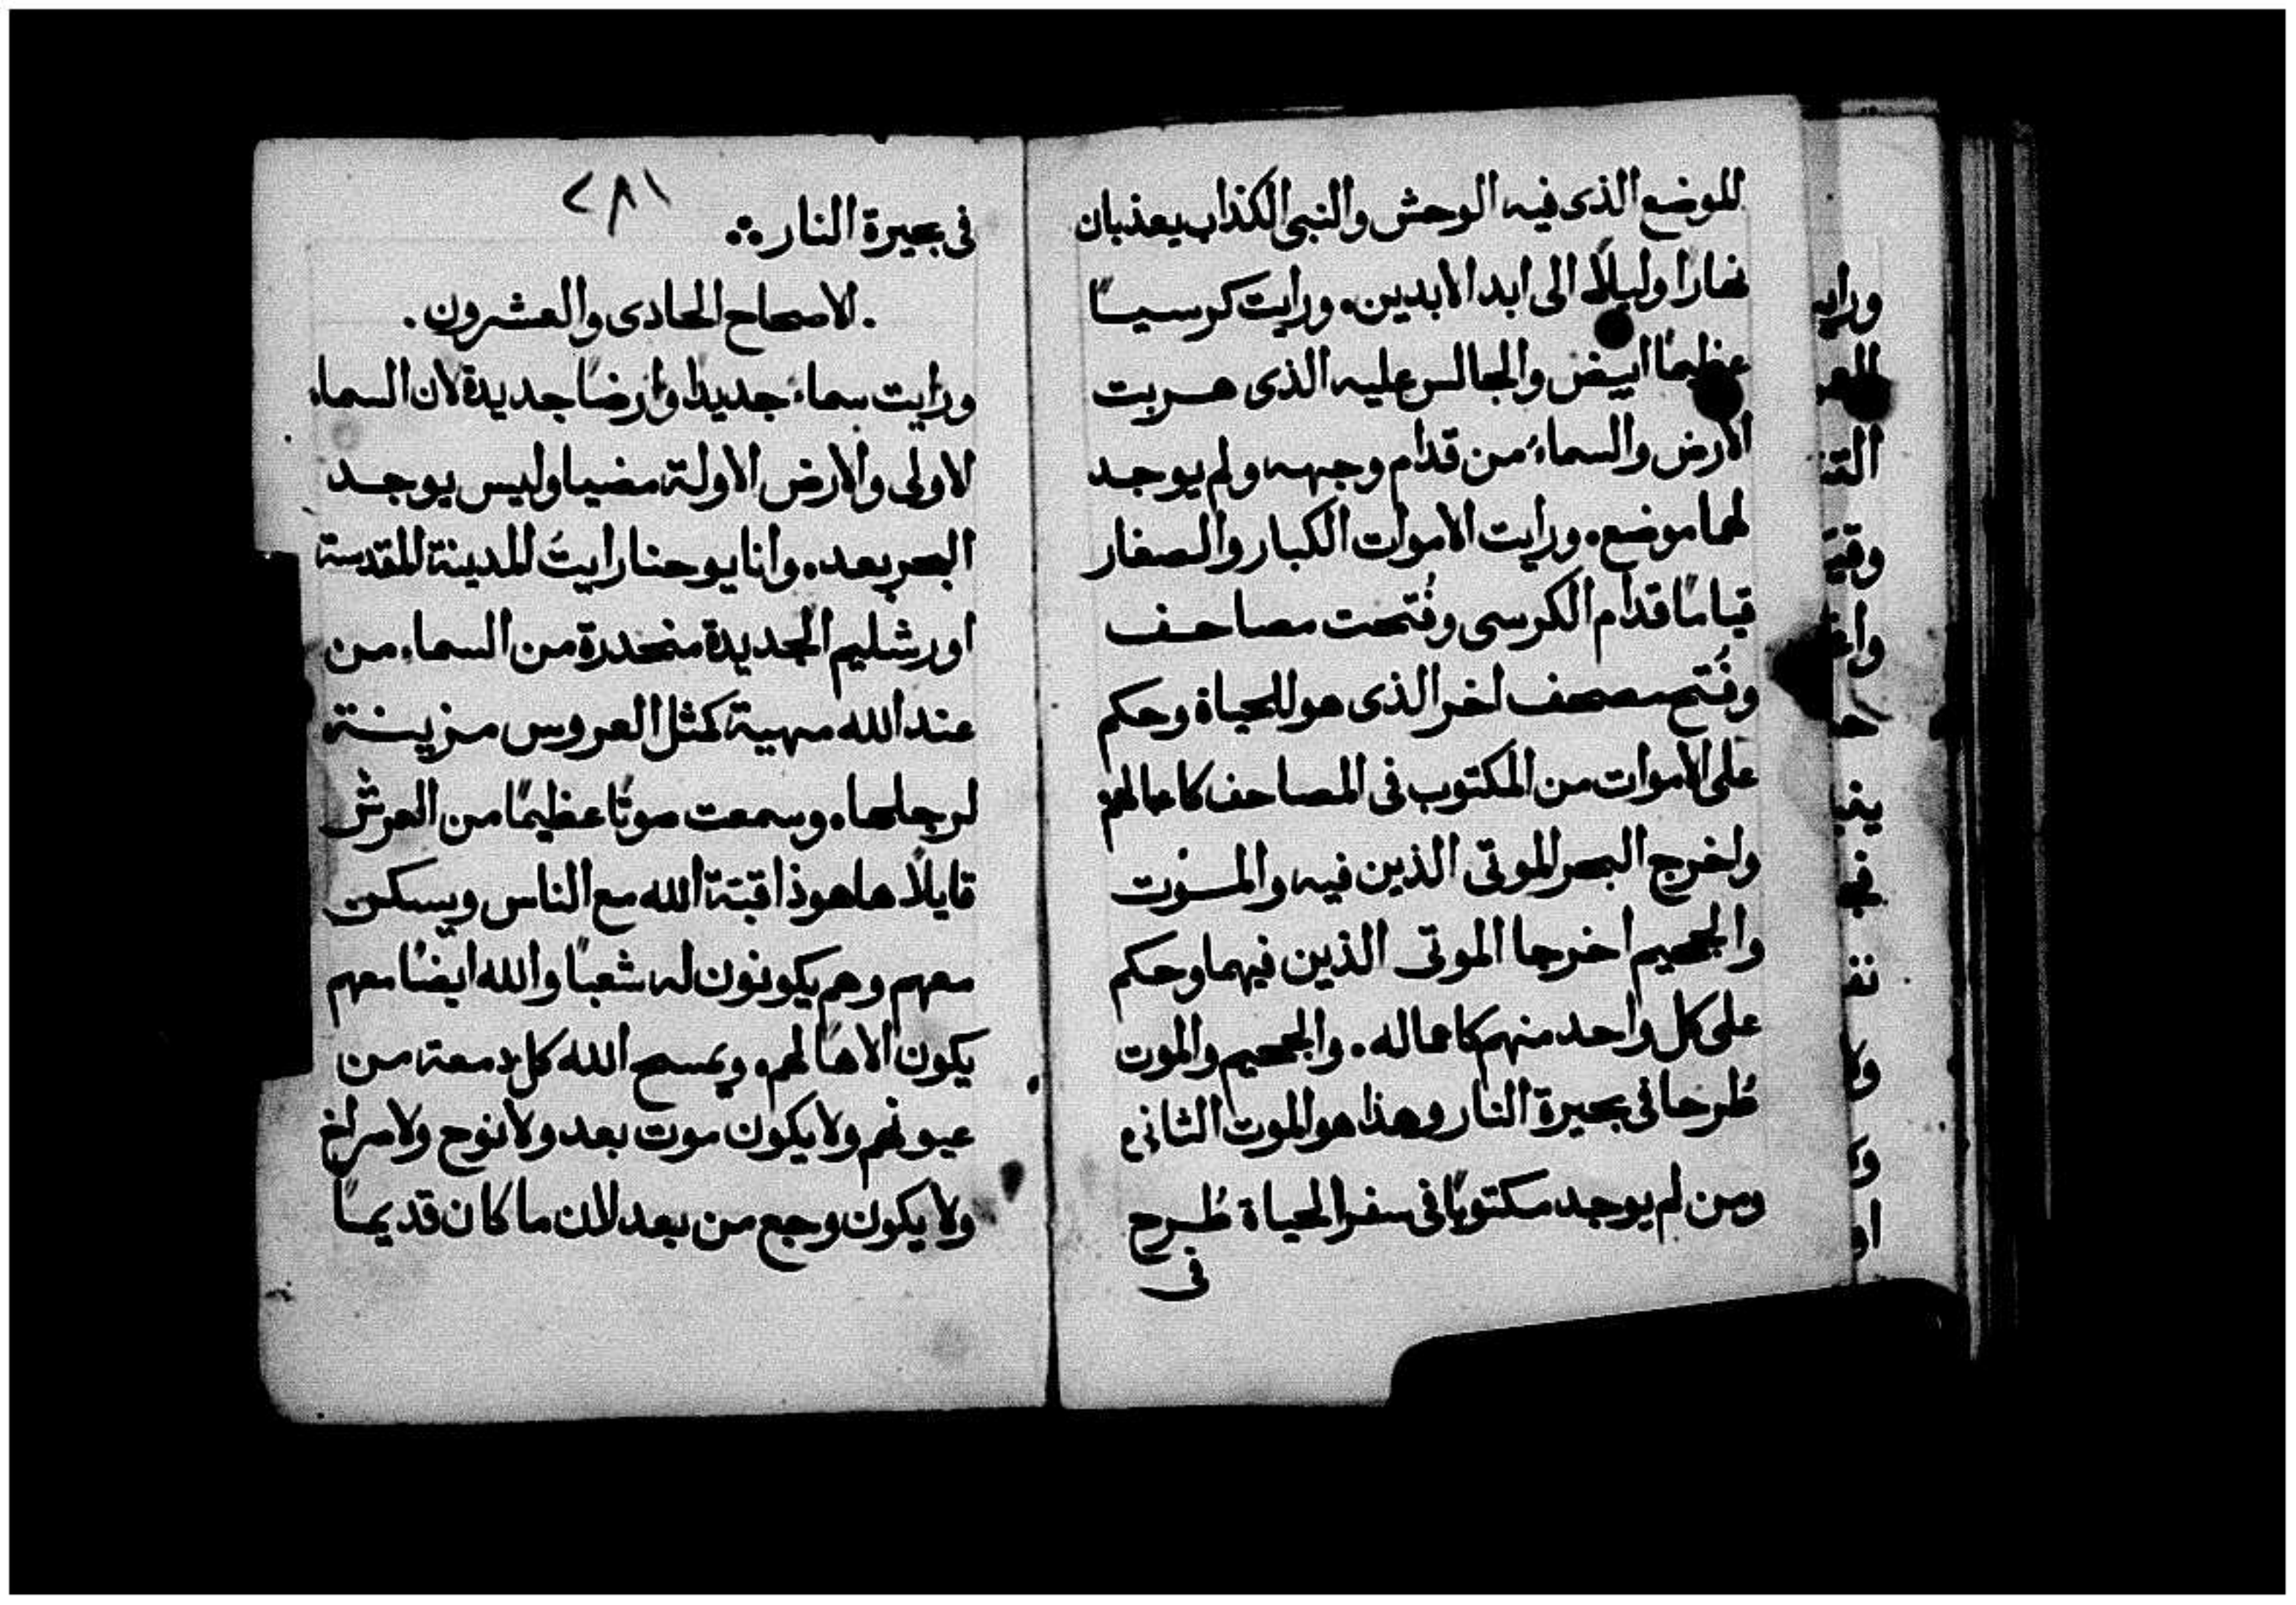 للموضع الذى فيه الوحش والنبى الكذاب يعذبان
نهارا وليلًا الى ابد الابدين. ورايت كرسيـًا
عظيمًا ابيض والجالس عليه الذى هربت
الارض والسماء من قدام وجهه ولم يوجد
لهما موضع. ورايت الاموات الكبار والصغار
قيامًا قدام الكرسى وفُتحت مصاحف
وفُتح مصحف اخر الذى هو للحياة وحكم
على الاموات من المكتوب فى المصاحف كاعمالهم
واخرج البحر الموتى الذين فيه والموت
والجحيم اخرجا الموتى الذين فيهما وحكم
على كل واحد منهم كاعماله. والجحيم والموت
طُرحا فى بحيرة النار وهذا هو الموت الثانى
ومن لم يوجد مكتوبًا فى سفر الحياة طُرح
فى
٢٨١
فى بحيرة النار
. الاصحاح الحادى والعشرون .
ورايت سماء جديدا وارضًا جديدة لان السماء
الاولى والارض الاولة مضيا وليس يوجد
البحر بعد. وانا يوحنا رايتُ المدينة المقدسة
اورشليم الجديدة منحدرة من السماء من
عند الله مهية كمثل العروس مزينة
لرجلها. وسمعت صوتًا عظيمًا من العرش
قايلًا ها هوذا قبة الله مع الناس ويسكن
معهم وهم يكونون له شعبًا والله ايضًا معهم
يكون الاهًا لهم. ويمسح الله كل دمعة من
عيونهم ولا يكون موت بعد ولا نوح ولا صراخ
ولا يكون وجع من بعد لان ما كان قديمـًا